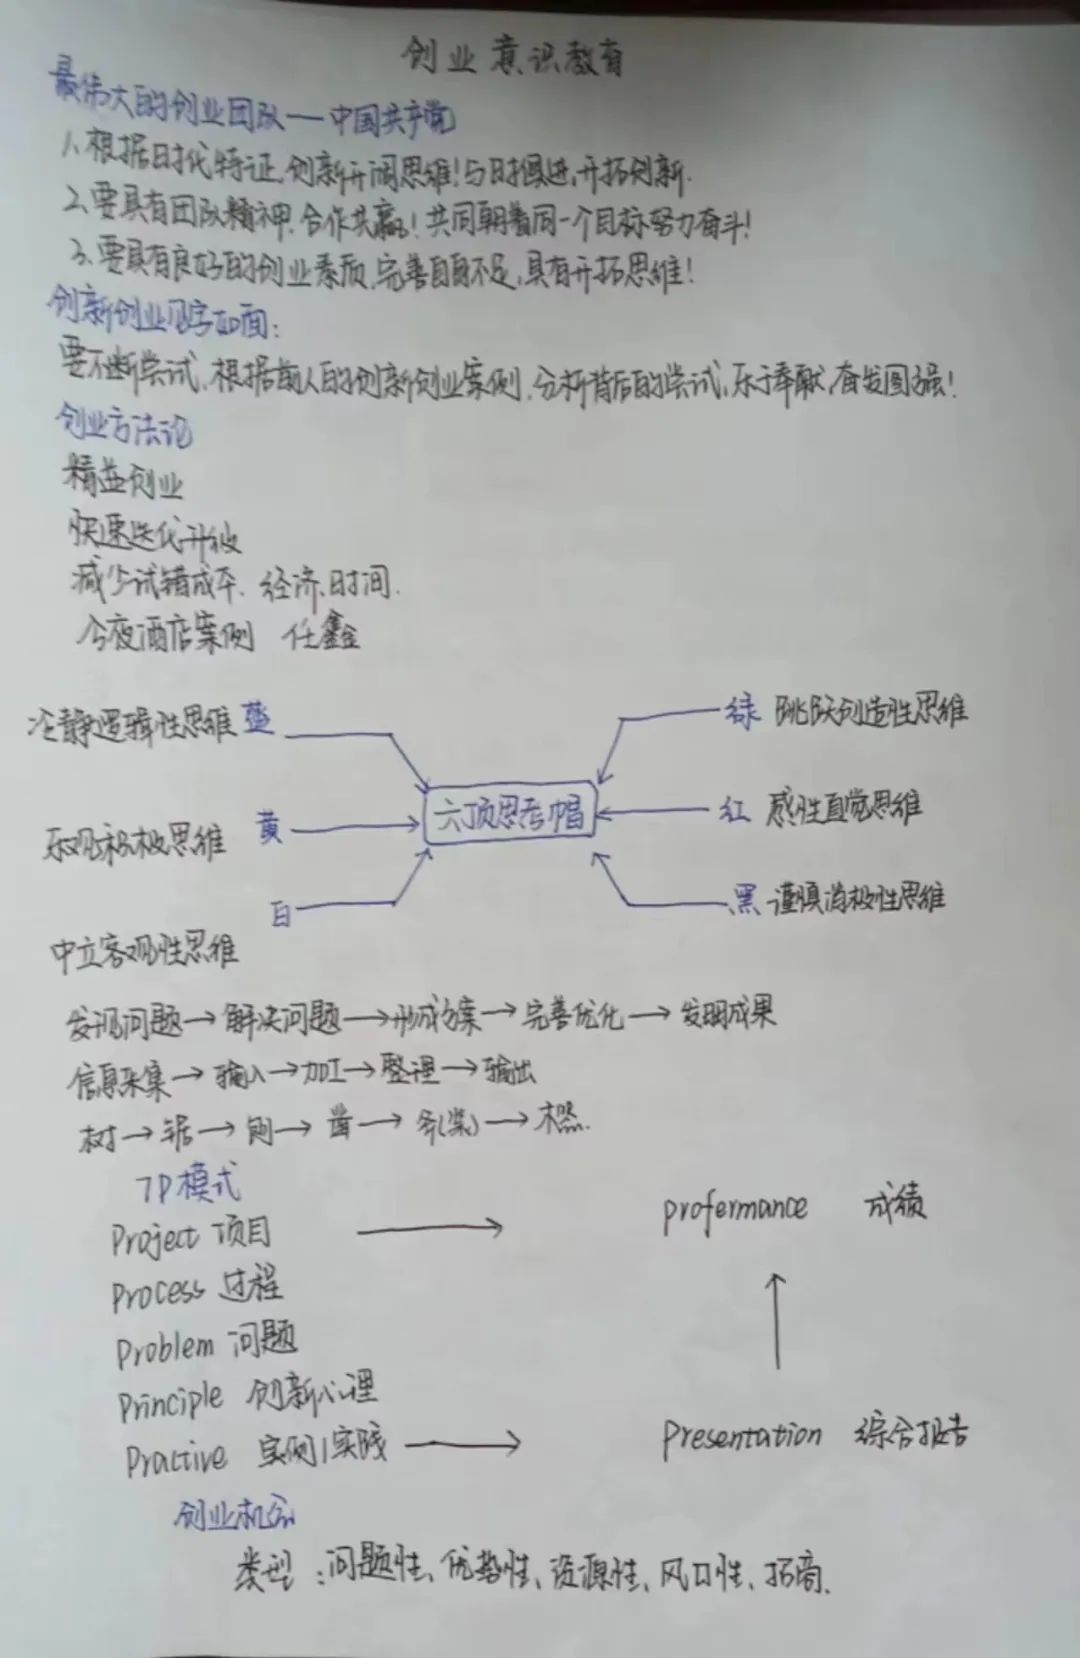 创业意识教育
最伟大的创业团队——中国共产党
1、根据时代特证,创新开阔思维!与时俱进,开拓创新.
2、要具有团队精神.合作共赢!共同朝着同一个目标努力奋斗!
3、要具有良好的创业素质,完善自身不足,具有开拓思维!
创新创业见字如面:
要不断尝试,根据前人的创新创业案例,分析背后的尝试,乐于奉献,奋发图强!
创业方法论
精益创业
快速迭代升级
减少试错成本. 经济、时间.
今夜酒店案例 任鑫
冷静逻辑性思维 蓝
绿 跳跃创造性思维
六顶思考帽
乐观积极思维 黄
红 感性直觉思维
白
黑 谨慎消极性思维
中立客观性思维
发现问题→解决问题→形成方案→完善优化→发明成果
信息采集→输入→加工→整理→输出
树→锯→
7P模式
Project 项目 → profermance 成绩
Process 过程
Problem 问题
Principle 创新心理
Practive 实例/实践 → Presentation 综合报告
创业机会
类型:问题性、优势性、资源性、风口性、招商.